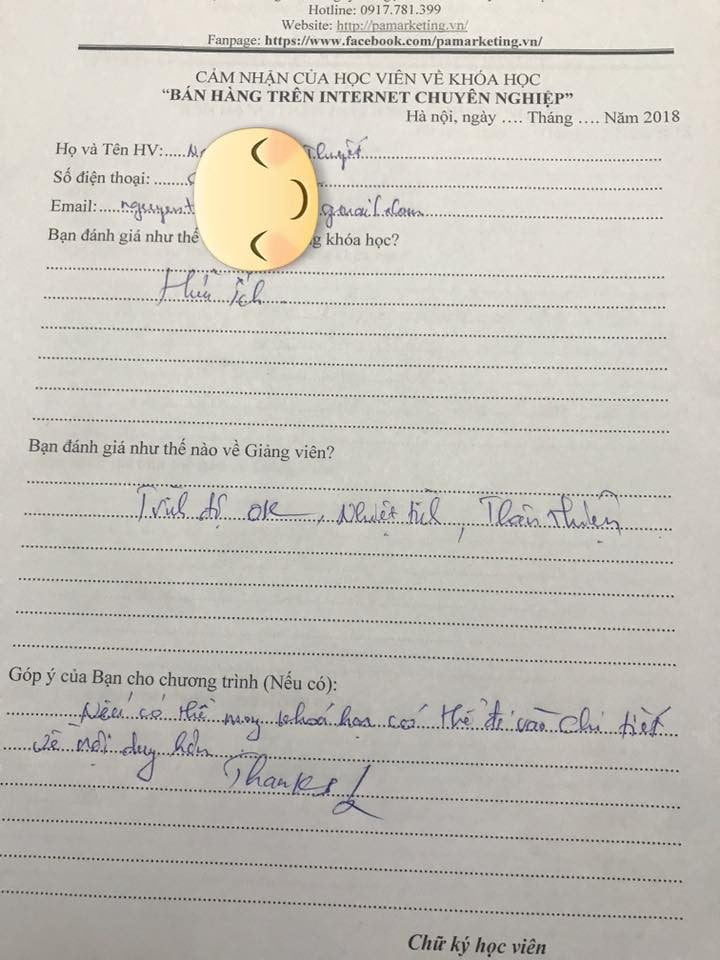 Hotline: 0917.781.399
Website: http://pamarketing.vn/
Fanpage: https://www.facebook.com/pamarketing.vn/
CẢM NHẬN CỦA HỌC VIÊN VỀ KHÓA HỌC
“BÁN HÀNG TRÊN INTERNET CHUYÊN NGHIỆP”
Hà nội, ngày .... Tháng .... Năm 2018
Họ và Tên HV:..... Thuyết
Số điện thoại: .......
Email:.... nguyen.t gmail.com
Bạn đánh giá như thế g khóa học?
Hữu ích
Bạn đánh giá như thế nào về Giảng viên?
Trình độ ok, Nhiệt tình, Thân thiện
Góp ý của Bạn cho chương trình (Nếu có):
Nếu có thể mong khoá học có thể đi vào chi tiết
về nội dung hơn
Thanks
Chữ ký học viên